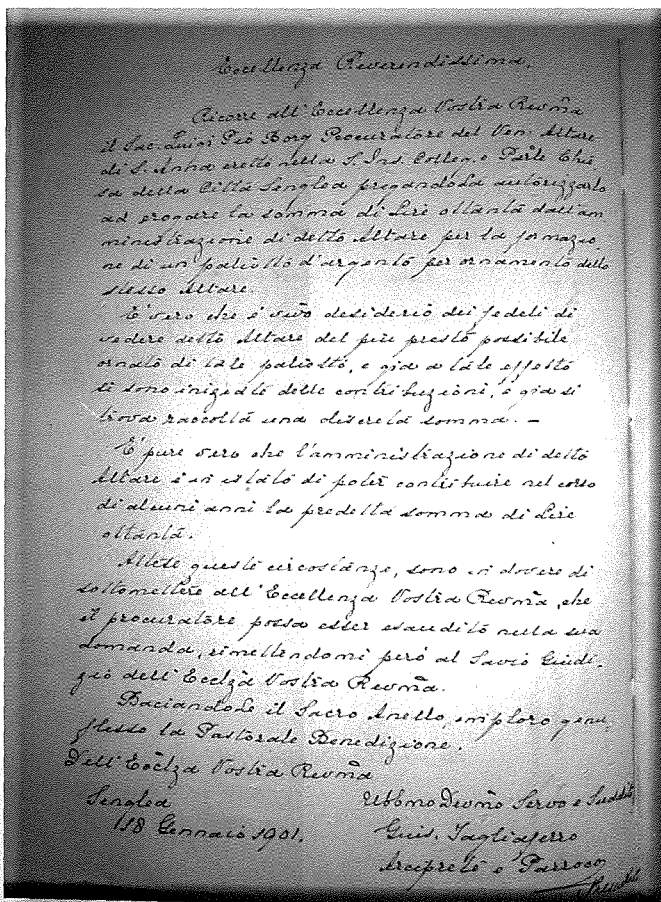 Eccellenza Reverendissima,
Ricorre all'Eccellenza Vostra Revma
il Sac. Luigi Pio Borg Procuratore del Ven. Altare
di S. Anna eretto nella S. Ins. Colleg. e Parle Chie
sa della Città Senglea pregandola autorizzarlo
ad erogare la somma di Lire ottanta dall'am
ministrazione di detto Altare per la formazio
ne di un paliotto d'argento per ornamento dello
stesso Altare.
E' vero che è vivo desiderio dei fedeli di
vedere detto Altare del più presto possibile
ornato di tale paliotto, e già a tale effetto
si sono iniziate delle contribuzioni, e già si
trova raccolta una discreta somma. –
E' pure vero che l'amministrazione di detto
Altare è in istato di poter contribuire nel corso
di alcuni anni la predetta somma di Lire
ottanta.
Attese queste circostanze, sono in dovere di
sottomettere all'Eccellenza Vostra Revma, che
il procuratore possa esser esaudito nella sua
domanda, rimettendomi però al Savio Giudi-
zio dell'Ecclza Vostra Revma.
Baciandole il Sacro Anello, imploro genu
flesso la Pastorale Benedizione.
Dell'Ecclza Vostra Revma
Senglea
18 Gennaio 1901.
Ubbmo Devmo Servo e Suddito
Guis. Tagliaferro
Arciprete e Parroco